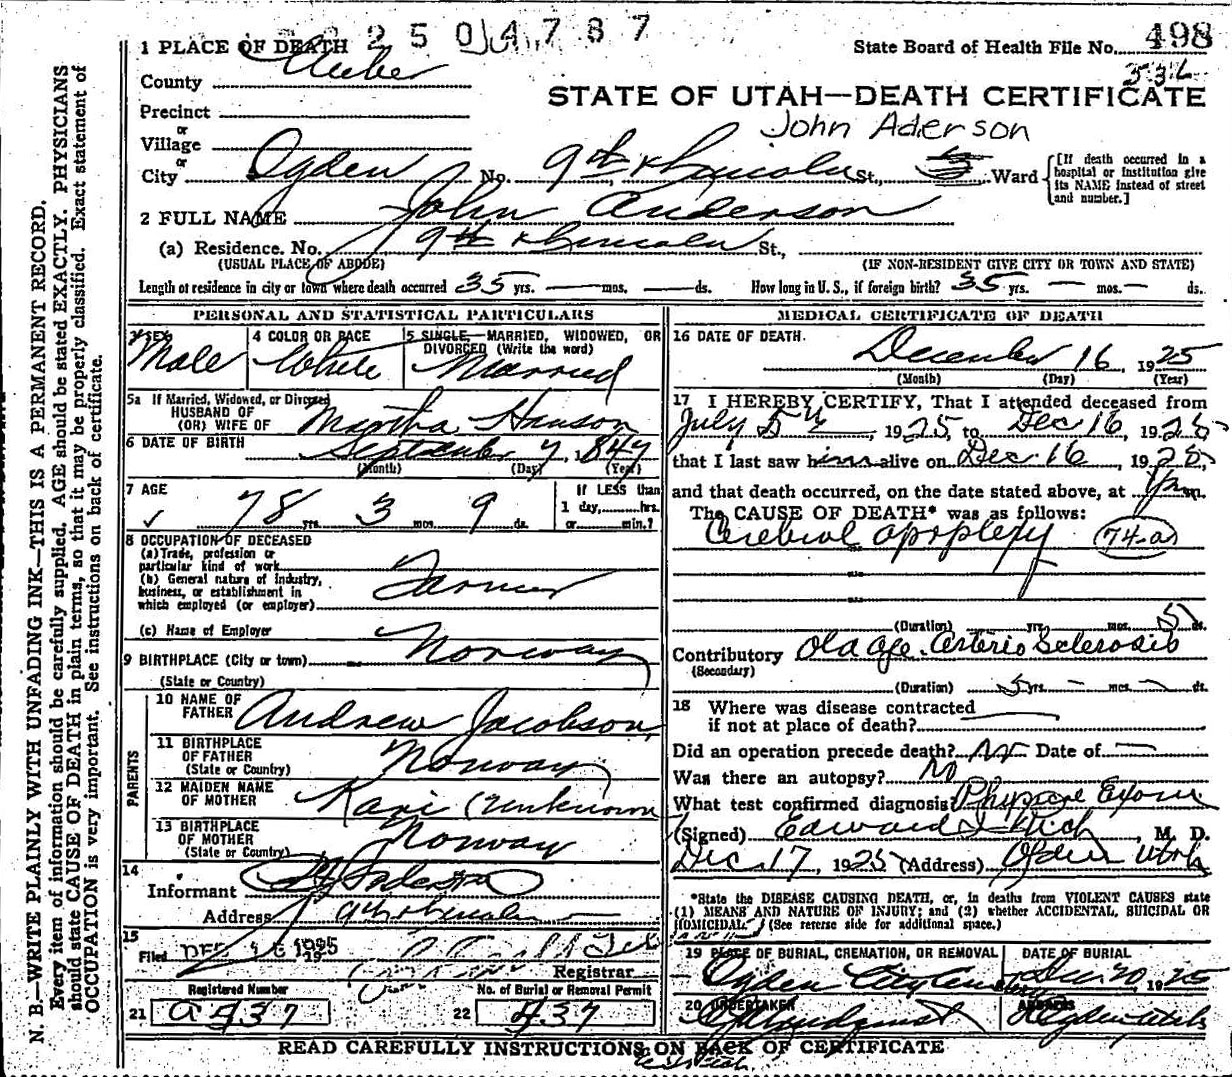 2504787
1 PLACE OF DEATH
State Board of Health File No. 498
County Weber
336
STATE OF UTAH—DEATH CERTIFICATE
Precinct
John Aderson
or
Village
or
City Ogden No. 9th & Lincoln St., 5 Ward
[If death occurred in a hospital or institution give its NAME instead of street and number.]
2 FULL NAME John Anderson
(a) Residence. No. 9th & Lincoln St.,
(USUAL PLACE OF ABODE) (IF NON-RESIDENT GIVE CITY OR TOWN AND STATE)
Length of residence in city or town where death occurred 35 yrs. — mos. — ds. How long in U. S., if foreign birth? 35 yrs. — mos. — ds.
PERSONAL AND STATISTICAL PARTICULARS
3 SEX Male
4 COLOR OR RACE White
5 SINGLE, MARRIED, WIDOWED, OR DIVORCED (Write the word) Married
5a If Married, Widowed, or Divorced
HUSBAND OF
(OR) WIFE OF Martha Hanson
6 DATE OF BIRTH September 7, 1847
(Month) (Day) (Year)
7 AGE 78 yrs. 3 mos. 9 ds.
If LESS than 1 day, hrs. or min.?
8 OCCUPATION OF DECEASED
(a) Trade, profession or particular kind of work
(b) General nature of industry, business, or establishment in which employed (or employer) Farmer
(c) Name of Employer
9 BIRTHPLACE (City or town) Norway
(State or Country)
PARENTS
10 NAME OF FATHER Andrew Jacobson
11 BIRTHPLACE OF FATHER (State or Country) Norway
12 MAIDEN NAME OF MOTHER Kari (Unknown
13 BIRTHPLACE OF MOTHER (State or Country) Norway
14 Informant
Address 9th & Lincoln
15 Filed DEC 16 1925
Registrar
Registered Number
21 a 437
No. of Burial or Removal Permit
22 437
MEDICAL CERTIFICATE OF DEATH
16 DATE OF DEATH December 16, 1925
(Month) (Day) (Year)
17 I HEREBY CERTIFY, That I attended deceased from
July 5th, 1925, to Dec 16, 1925
that I last saw him alive on Dec. 16, 1925,
and that death occurred, on the date stated above, at m.
The CAUSE OF DEATH* was as follows:
Cerebral apoplexy 74-a
(Duration) yrs. mos. 5 ds.
Contributory Old age. Arterio Sclerosis
(Secondary)
(Duration) 5 yrs. — mos. — ds.
18 Where was disease contracted
if not at place of death?
Did an operation precede death? No Date of —
Was there an autopsy? No
What test confirmed diagnosis? Physical Exam
(Signed) Edward I Rich, M. D.
Dec 17, 1925 (Address) Ogden Utah
*State the DISEASE CAUSING DEATH, or, in deaths from VIOLENT CAUSES state
(1) MEANS AND NATURE OF INJURY; and (2) whether ACCIDENTAL, SUICIDAL OR
HOMICIDAL. (See reverse side for additional space.)
19 PLACE OF BURIAL, CREMATION, OR REMOVAL
Ogden City Cemetery
DATE OF BURIAL
Dec 20, 1925
20 UNDERTAKER
ADDRESS
Ogden Utah
READ CAREFULLY INSTRUCTIONS ON BACK OF CERTIFICATE
N. B.—WRITE PLAINLY WITH UNFADING INK—THIS IS A PERMANENT RECORD.
Every item of information should be carefully supplied. AGE should be stated EXACTLY. PHYSICIANS
should state CAUSE OF DEATH in plain terms, so that it may be properly classified. Exact statement of
OCCUPATION is very important. See instructions on back of certificate.